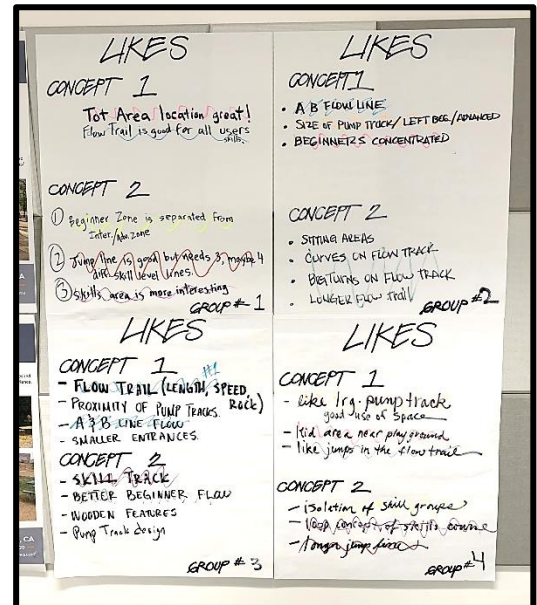 LIKES
CONCEPT 1
Tot Area location great!
Flow Trail is good for all users
skills.
CONCEPT 2
① Beginner Zone is separated from
Inter./Adv. Zone
② Jump line is good but needs 3, maybe 4
diff skill level lines.
③ Skills area is more interesting
GROUP # 1
LIKES
CONCEPT 1
• A B FLOW LINE
• SIZE OF PUMP TRUCK/ LEFT BEG/ADVANCED
• BEGINNERS CONCENTRATED
CONCEPT 2
• SITTING AREAS
• CURVES ON FLOW TRACK
• BIG TURNS ON FLOW TRACK
• LONGER FLOW TRAIL
GROUP #2
LIKES
CONCEPT 1
#1
- FLOW TRAIL (LENGTH, SPEED
ROCK)
- PROXIMITY OF PUMP TRACKS.
- A & B LINE FLOW
- SMALLER ENTRANCES.
CONCEPT 2
- SKILL TRACK
- BETTER BEGINNER FLOW
- WOODEN FEATURES
- Pump Track design
GROUP # 3
LIKES
CONCEPT 1
- like lrg. pump track
good use of space
- Kid area near playground
- like jumps in the flow trail
CONCEPT 2
- isolation of skill groups
- loop concept of skills course
- longer jump lines
GROUP #4
CA